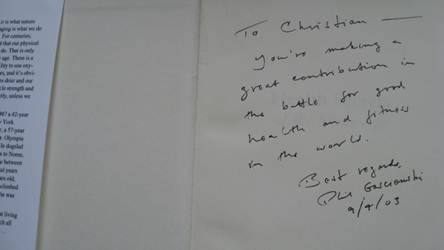 is what nature
aging is what we do
For centuries,
that our physical
do. That is only
age. There is a
lity to use oxy-
es, and it's obvi-
deter and our
cle strength and
ly, unless we
987 a 42-year
York
a 57-year
Olympia
dogsled
to Nome,
between
years
old,
climbed
she was
living
To Christian —
You're making a
great contribution in
the battle for good
health and fitness
in the world.
Best regards,
Phil
9/9/03